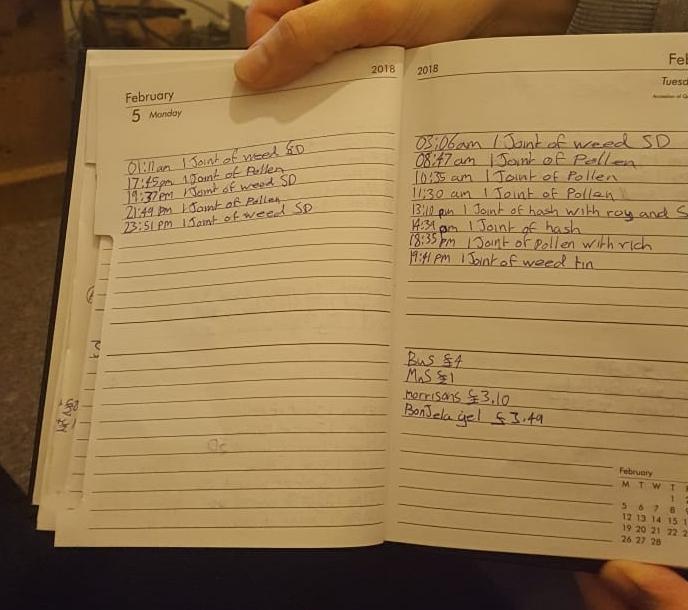 February 2018
5 Monday
01:11am 1 Joint of weed SD
17:45pm 1 Joint of Pollen
19:37pm 1 Joint of weed SD
21:49 pm 1 Joint of Pollen
23:51 pm 1 Joint of weed SD
2018 Feb
Tuesd
03:06am 1 Joint of weed SD
08:47am 1 Joint of Pollen
10:35 am 1 Joint of Pollen
11:30 am 1 Joint of Pollen
13:10 pm 1 Joint of hash with roy and S
14:34 pm 1 Joint of hash
18:35 pm 1 Joint of Pollen with rich
19:41 PM 1 Joint of weed tin
Bus £4
MnS £1
morrisons £3.10
Bonjela gel £3.49
February
M T W T
1
5 6 7 8
12 13 14 15
19 20 21 22
26 27 28